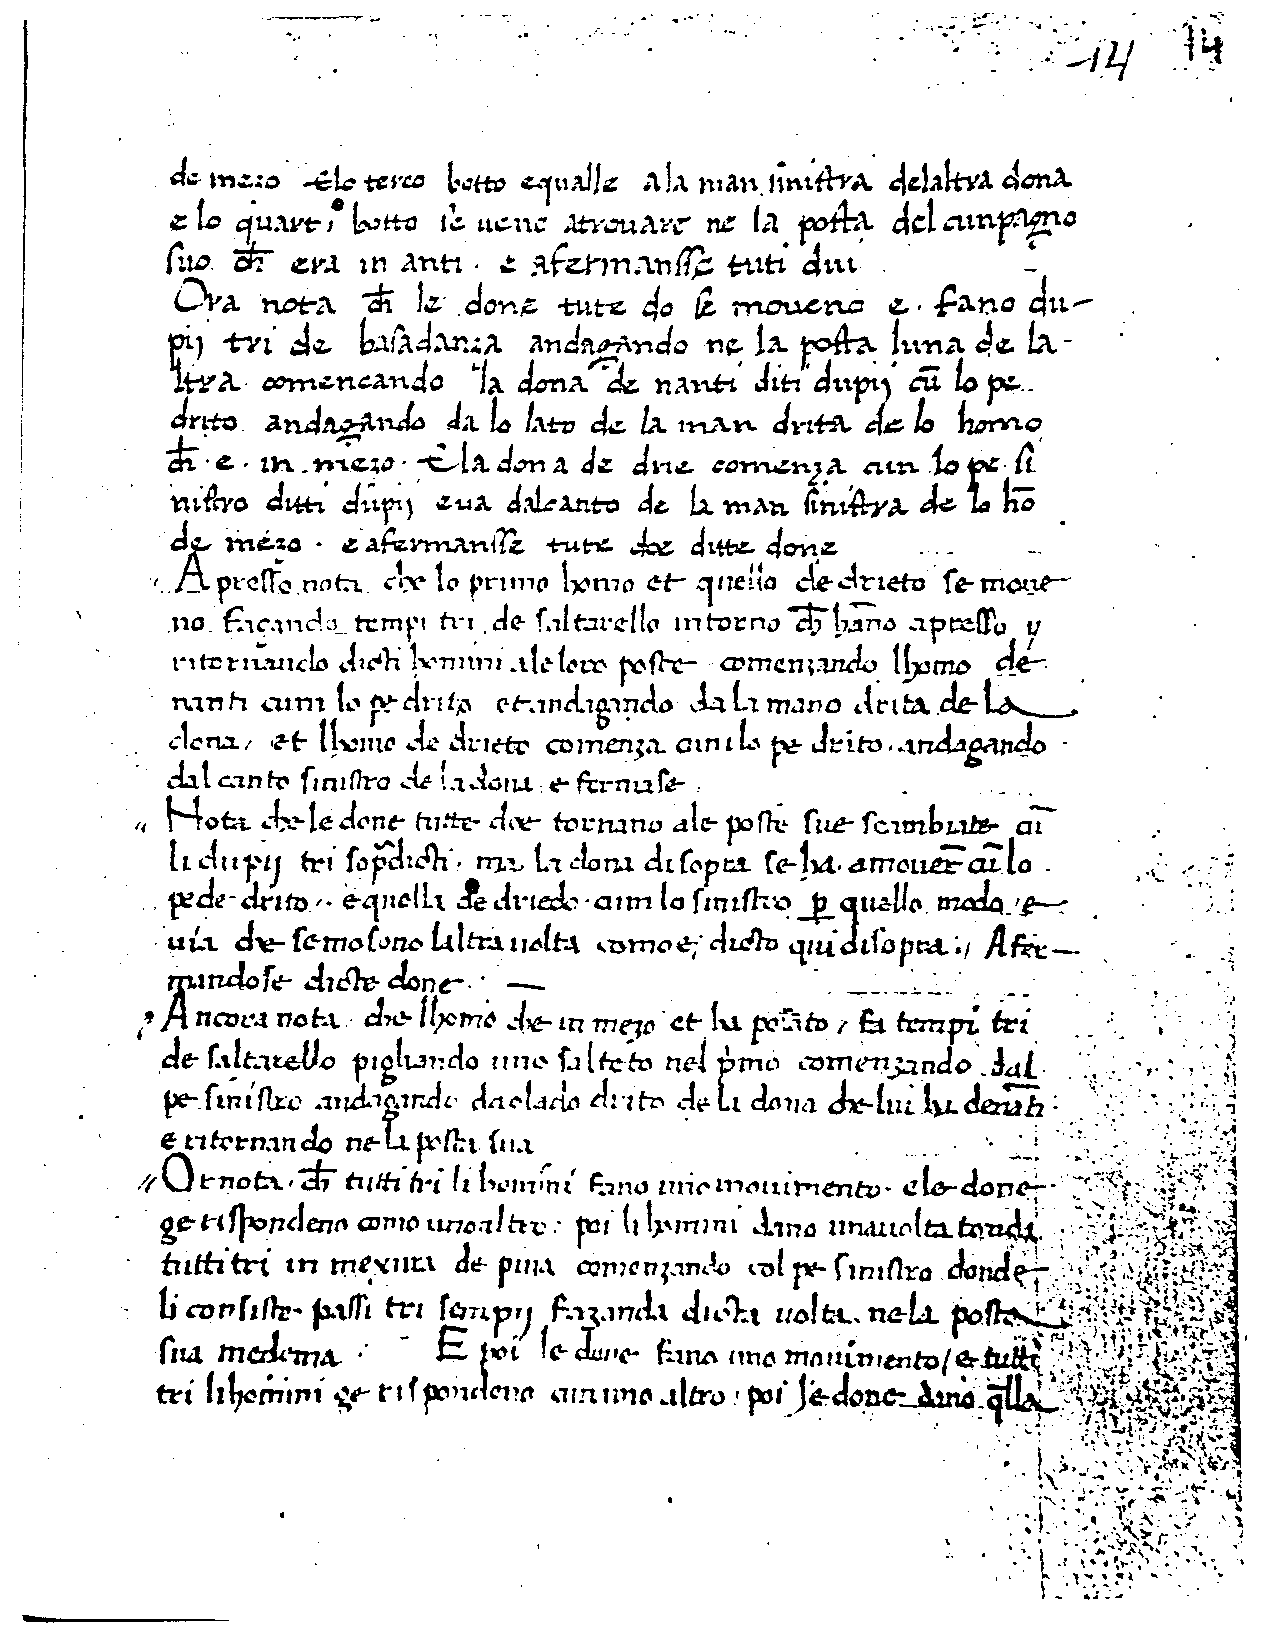 14 14
de mezo e lo terco botto equalle a la man sinistra delaltra dona
e lo quarti botto se uene atrouare ne la posta del cunpagno
suo ch̄ era in anti · e afermansse tuti dui
Ora nota ch̄ le done tute do se moueno e · fano du-
pij tri de basadanza andagando ne la posta luna de la-
ltra comencando la dona de nanti diti dupij cū lo pe
drito andagando da lo lato de la man drita de lo homo
ch̄ · e · in mezo · E la dona de drie comenza cun lo pe si
nistro diti dupij e ua dal canto de la man sinistra de lo hō
de mezo · e afermansse tute doe ditte done
Apresso nota che lo primo homo et quello de drieto se moue-
no facando tempi tri de saltarello intorno ch̄ hano apresso y
ritornando dicti homini ale loro poste comenzando lhomo de
nanti cum lo pe drito et andagando da la mano drita de la
dona / et lhomo de drieto comenza cum lo pe drito andagando
dal canto sinistro de la dona e fermase
" Nota che le done tutte doe tornano ale poste sue scambiate cū
li dupij tri sop̄dicti · ma la dona di sopra se ha a mouer cū lo
pede drito · e quella de driedo cum lo sinistro p̱ quello modo e
uia che se mosono laltra uolta como e dicto qui di sopra :/ Afer-
mandose dicte done · —
Ancora nota che lhomo che in mezo et ha posato / fa tempi tri
de saltarello pigliando uno salteto nel p̄mo comenzando dal
pe sinistro andagando da lado drito de la dona che lui ha denāti
e ritornando ne la posta sua
" Or nota ch̄ tutti tri li homini fano uno mouimento · e le done
ge rispondeno como uno altro : poi li homini dano una uolta tonda
tutti tri in mexura de piua comenzando col pe sinistro donde
li consiste passi tri sempij fazando dicta uolta ne la posta
sua medema · E poi le done fano uno mouimento / e tutti
tri li homini ge rispondeno cun uno altro : poi le done dano q̄lla